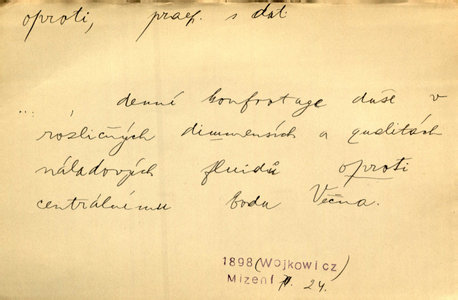 oproti, praep. s dat
... denní konfrontage duše v
rozličných dimmensích a qualitách
náladových fluidů oproti
centrálnému bodu Věčna.
1898 (Wojkowicz)
Mizení p. 24.